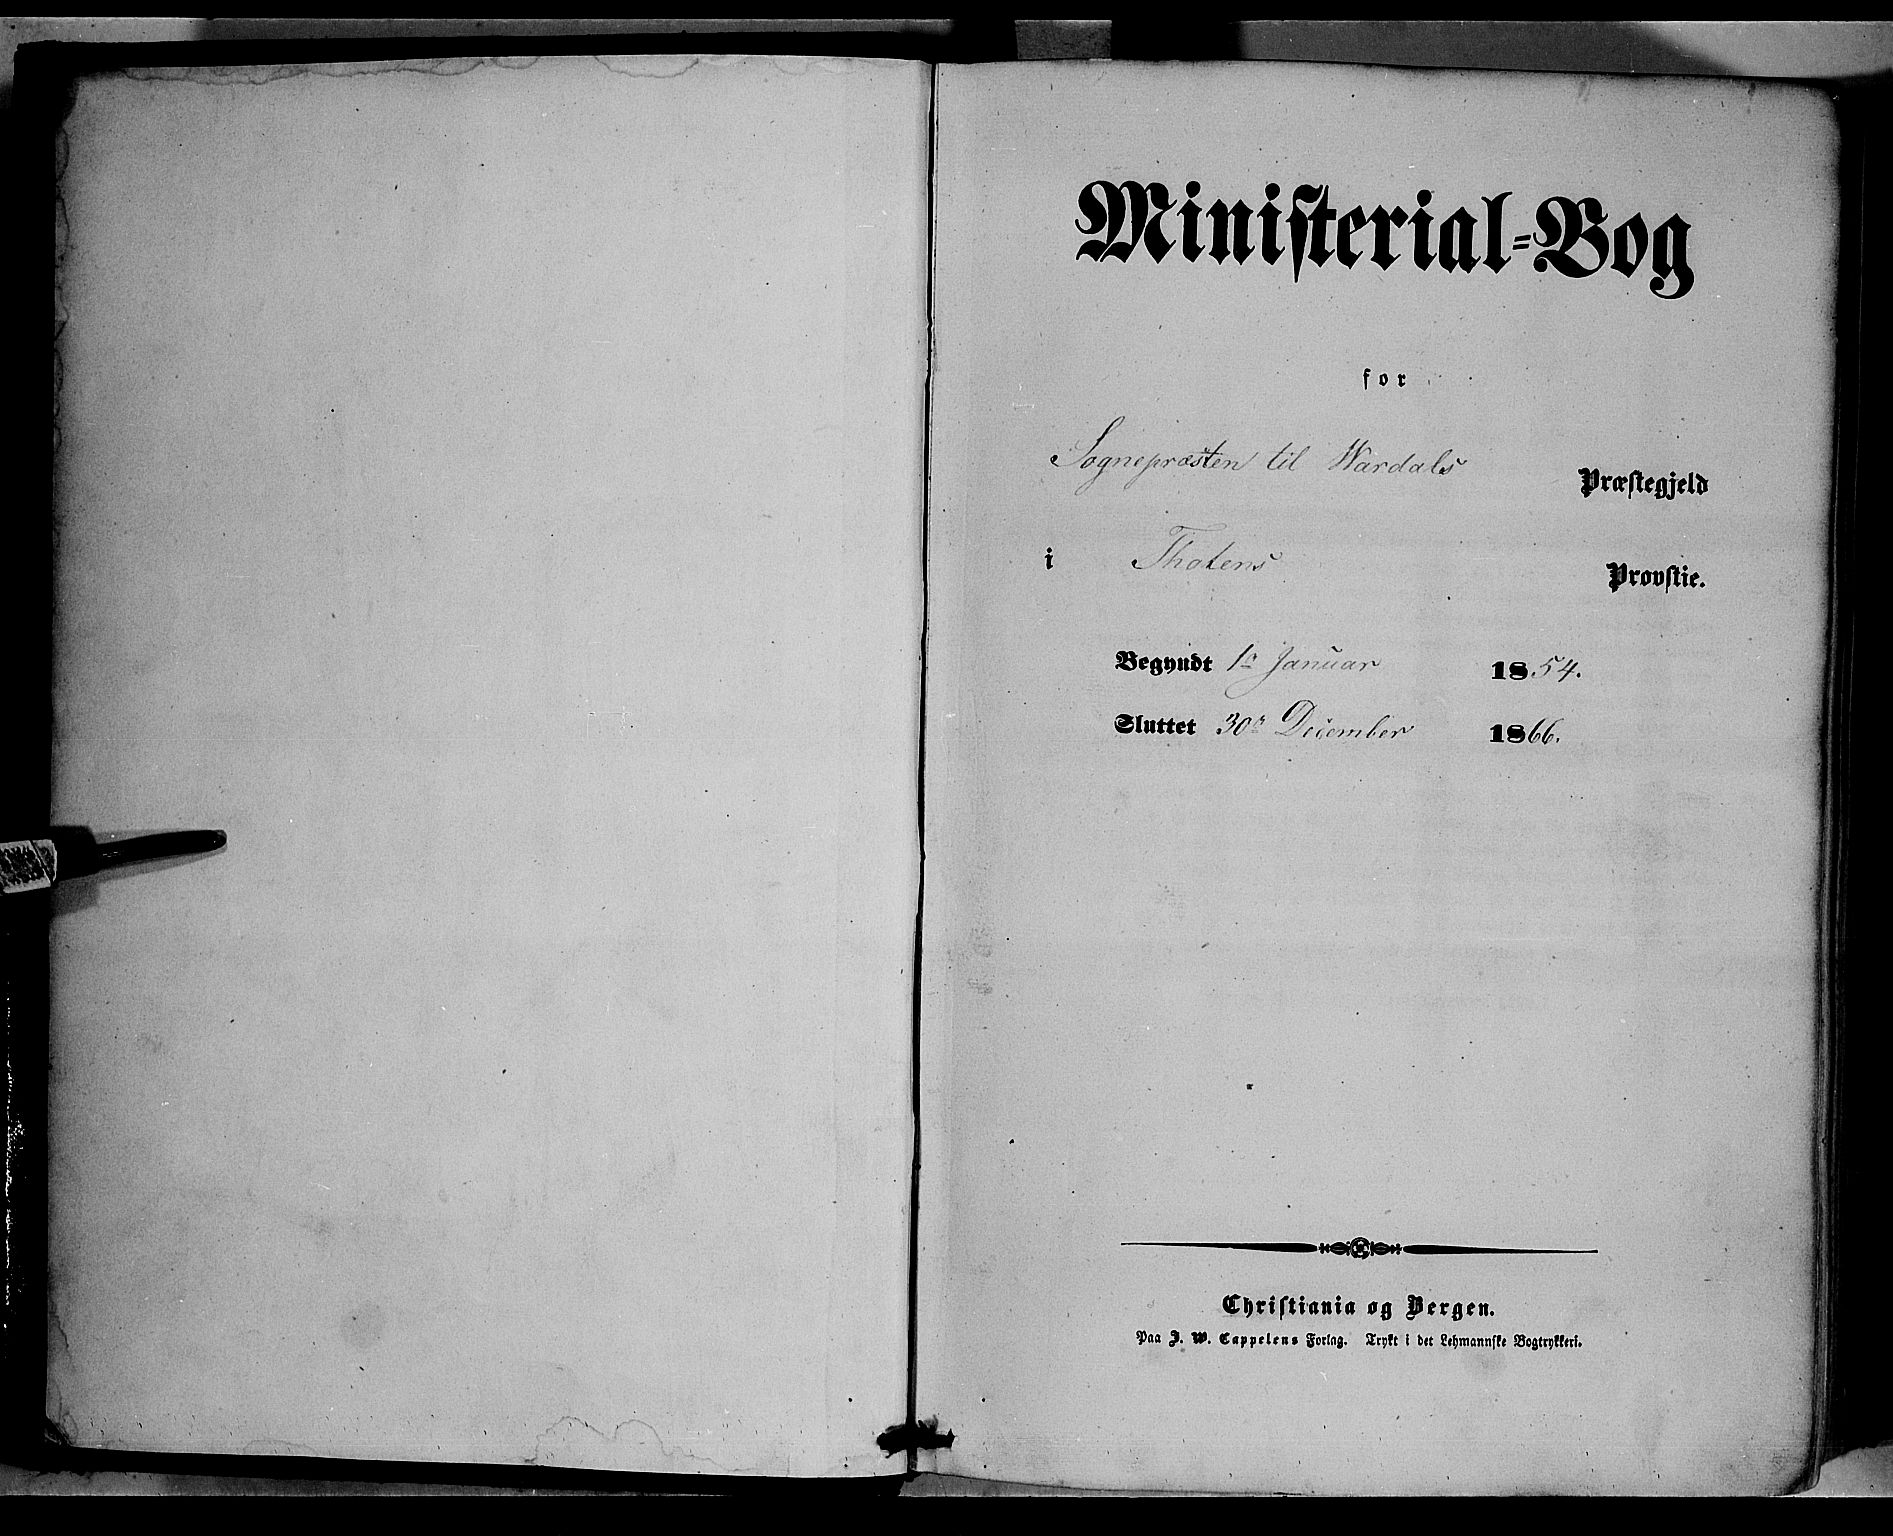 Ministerial-Bog
for
Sognepræsten til Wardals Præstegjeld
i Thotens Provstie.
Begyndt 1ste Januar 1854.
Sluttet 30te December 1866.
Christiania og Bergen.
Paa J. W. Cappelens Forlag. Trykt i det Lehmannske Bogtrykkeri.